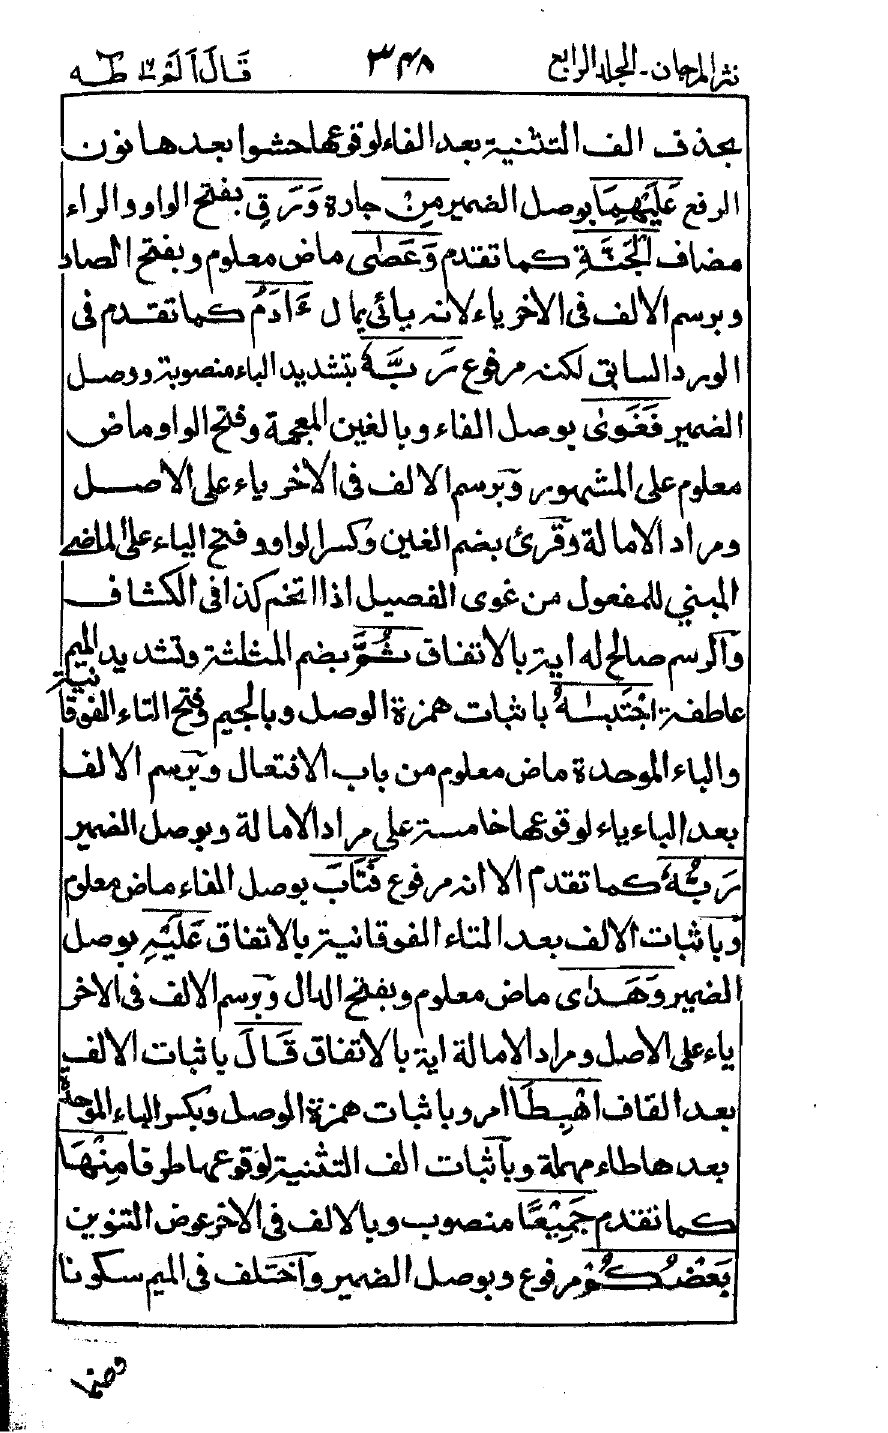 نثر المرجان - المجلد الرابع ٣٤٨ قَالَ اَلَمْ ١٦ طٰه
بحذف الف التثنية بعد الفاء لوقوعها حشوا بعدها نون
الرفع عَلَيْهِمَا بوصل الضمير مِنْ جارة وَرَقِ بفتح الواو والراء
مضاف الْجَنَّةِ كما تقدم وَعَصٰى ماض معلوم وبفتح الصاد
وبرسم الالف فى الاخر ياء لانه يائى يمال ءَادَمُ كما تقدم فى
الورد السابق لكنه مرفوع رَبَّهُ بتشديد الباء منصوبة ووصل
الضمير فَغَوٰى بوصل الفاء وبالغين المعجمة وفتح الواو ماض
معلوم على المشهور وبرسم الالف فى الاخر ياء على الاصل
ومراد الامالة وقرئ بضم الغين وكسر الواو وفتح الياء على الماضى
المبنى للمفعول من غوى الفصيل اذا اتخم كذا فى الكشاف
والرسم صالح له اية بالاتفاق ثُمَّ بضم المثلثة وتشديد الميم
عاطفة اجْتَبٰىهُ باثبات همزة الوصل وبالجيم وفتح التاء الفوقانية
والباء الموحدة ماض معلوم من باب الافتعال وبرسم الالف
بعد الباء ياء لوقوعها خامسة على مراد الامالة وبوصل الضمير
رَبُّهُ كما تقدم الا انه مرفوع فَتَابَ بوصل الفاء ماض معلوم
وباثبات الالف بعد التاء الفوقانية بالاتفاق عَلَيْهِ بوصل
الضمير وَهَدٰى ماض معلوم وبفتح الدال وبرسم الالف فى الاخر
ياء على الاصل ومراد الامالة اية بالاتفاق قَالَ باثبات الالف
بعد القاف اهْبِطَا امر وباثبات همزة الوصل وبكسر الباء الموحدة
بعدها طاء مهملة وباثبات الف التثنية لوقوعها طرفا مِنْهَا
كما تقدم جَمِيْعًا منصوب وبالالف فى الاخر عوض التنوين
بَعْضُكُمْ مرفوع وبوصل الضمير واختلف فى الميم سكونا
وضما